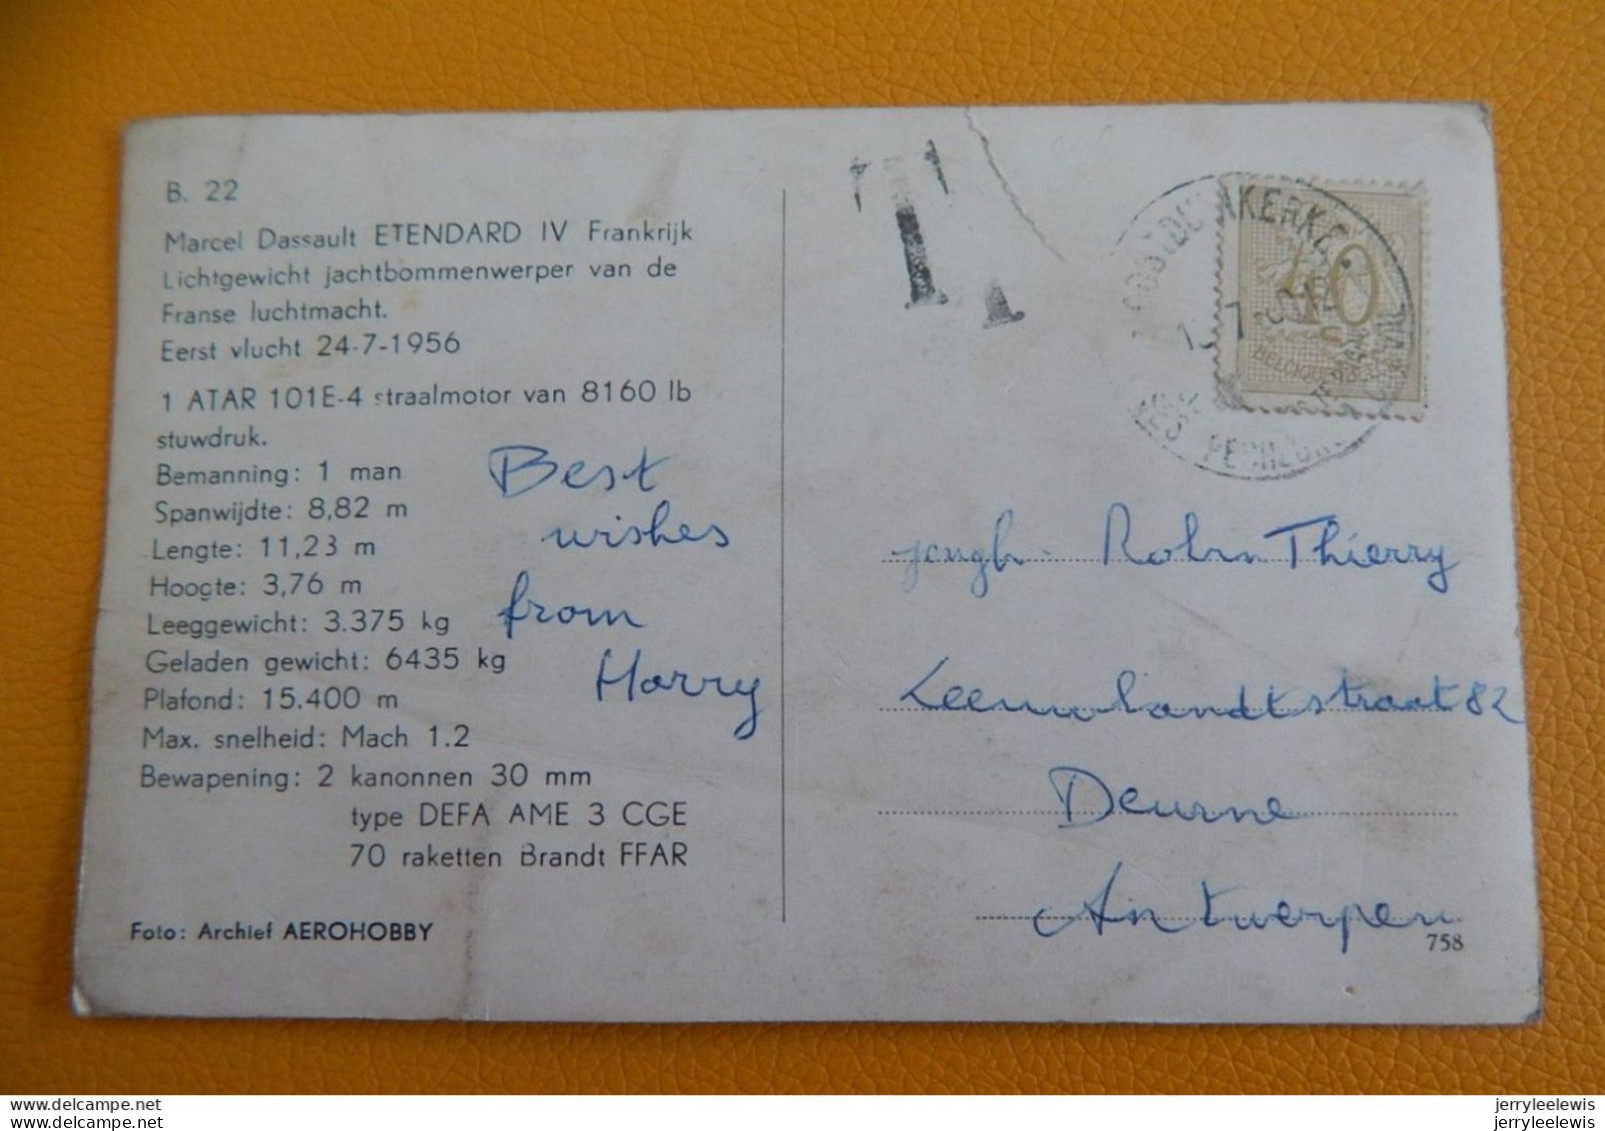 B. 22
Marcel Dassault ETENDARD IV Frankrijk
Lichtgewicht jachtbommenwerper van de
Franse luchtmacht.
Eerst vlucht 24-7-1956
1 ATAR 101E-4 straalmotor van 8160 lb
stuwdruk.
Bemanning: 1 man
Spanwijdte: 8,82 m
Lengte: 11,23 m
Hoogte: 3,76 m
Leeggewicht: 3.375 kg
Geladen gewicht: 6435 kg
Plafond: 15.400 m
Max. snelheid: Mach 1.2
Bewapening: 2 kanonnen 30 mm
type DEFA AME 3 CGE
70 raketten Brandt FFAR
Foto: Archief AEROHOBBY
Best
wishes
from
Harry
T
40
jongh. Robin Thierry
Leeuwlandtstraat 82
Deurne
Antwerpen
758
jerryleelewis
jerryleelewis
jerryleelewis
jerryleelewis